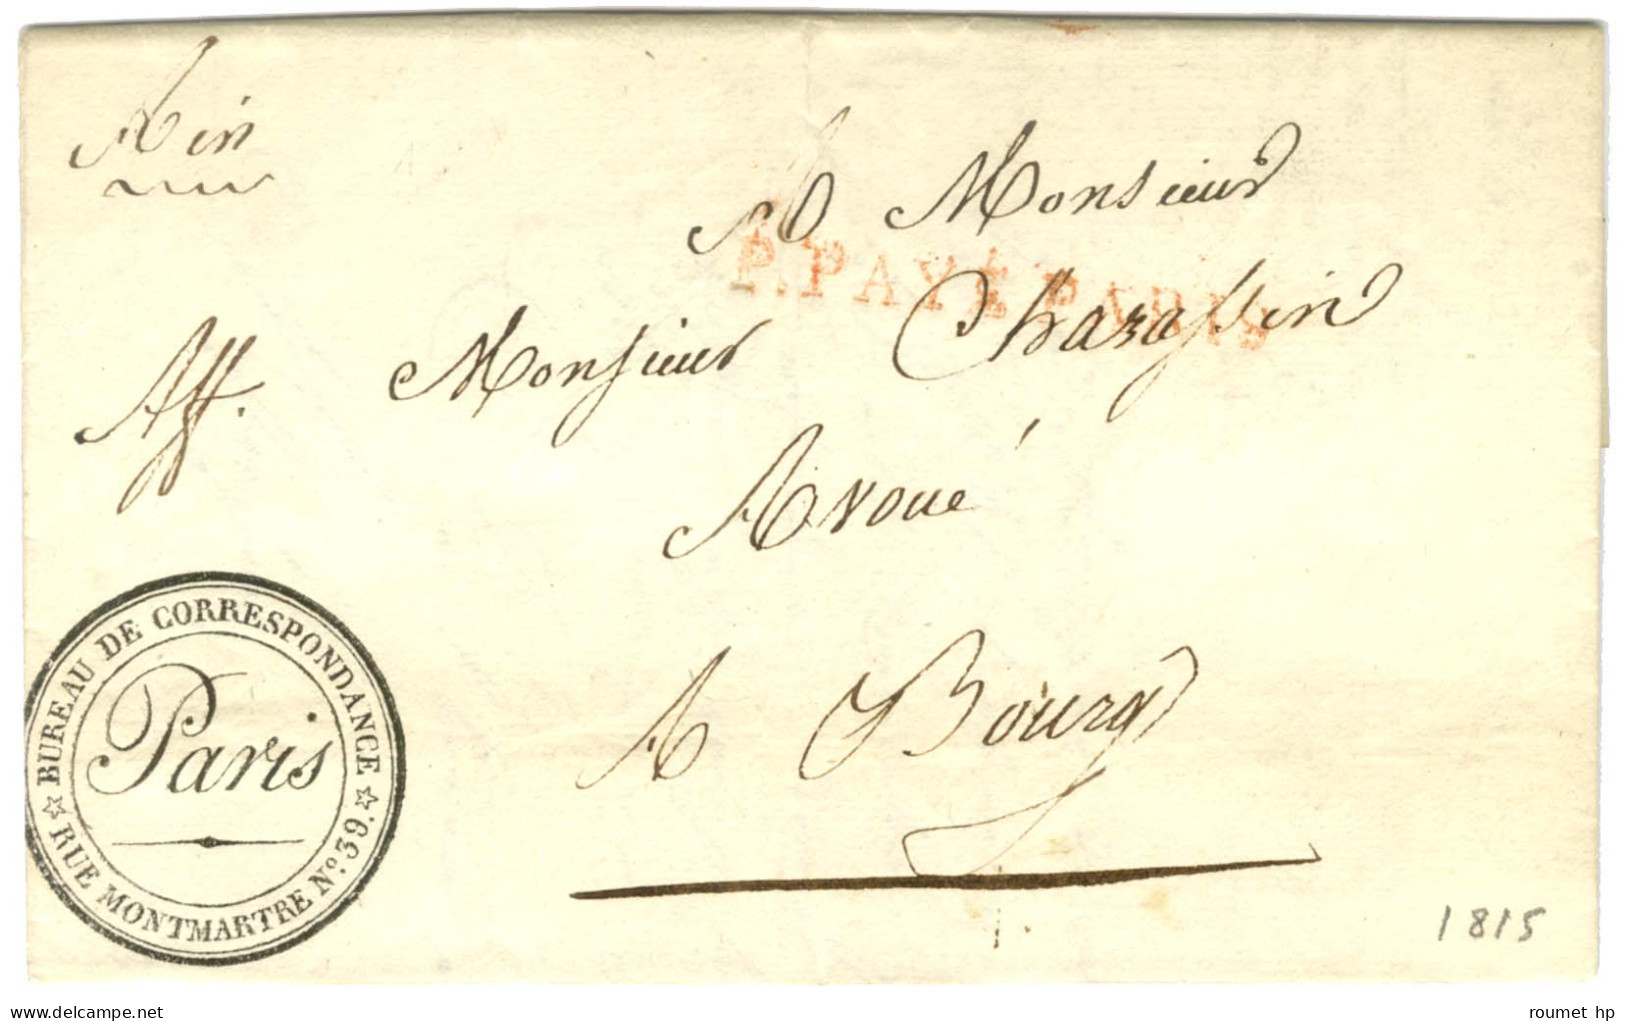 Ain
A Monsieur
P.PAYÉ PARIS
Monsieur Charassin
Aff.
Avoué
BUREAU DE CORRESPONDANCE
Paris
RUE MONTMARTRE N.º 39.
A Bourg
1815
www.delcampe.net
roumet hp